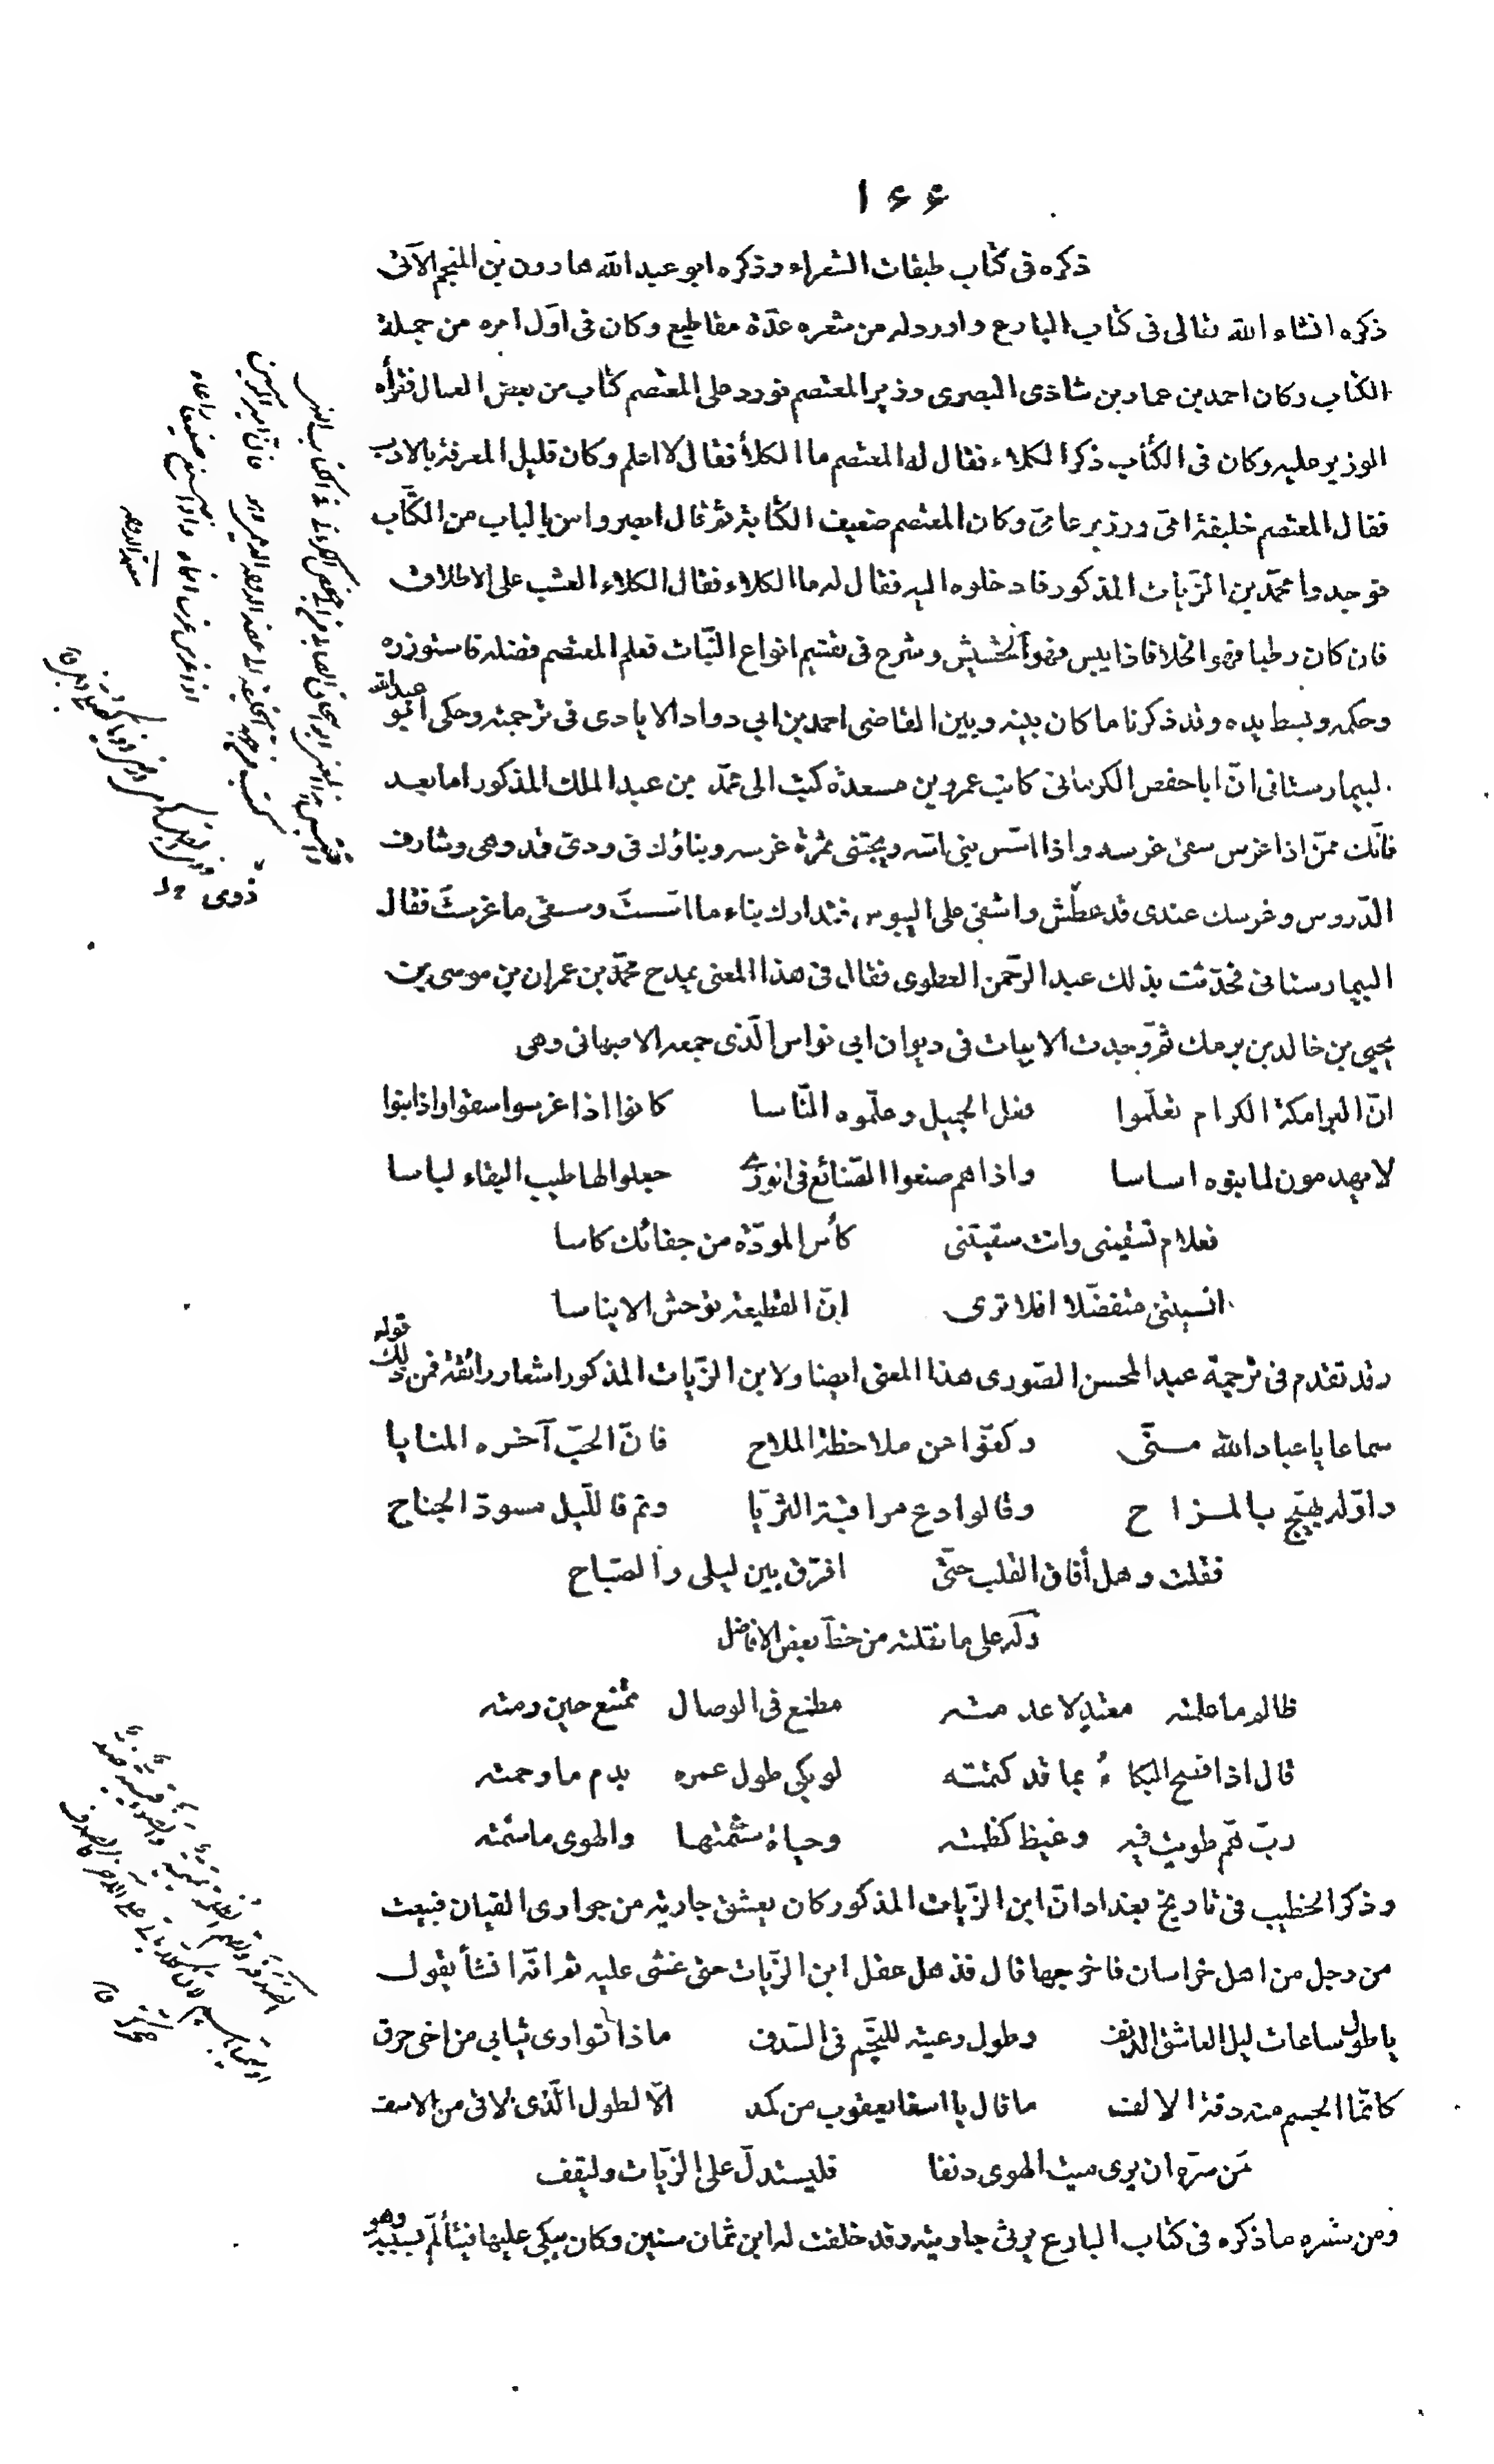 ۱۶۶
ذكره فى كتاب طبقات الشعراء وذكره ابو عبد الله هارون بن المنجم الآتى
ذكره انشاء الله تعالى فى كتاب البارع واورد له من شعره عدّة مقاطيع وكان فى اوّل امره من جملة
الكتاب وكان احمد بن عمار بن شاذى البصرى وزير المعتصم فورد على المعتصم كتاب من بعض العمال فقرأه
الوزير عليه وكان فى الكتاب ذكر الكلاء فقال له المعتصم ما الكلأ فقال لا اعلم وكان قليل المعرفة بالادب
فقال المعتصم خليفة امىّ ووزير عامىّ وكان المعتصم ضعيف الكتابة ثم قال ابصروا من بالباب من الكتّاب
فوجدوا محمّد بن الزيّات المذكور فادخلوه اليه فقال له ما الكلاء فقال الكلاء العشب على الاطلاق
فان كان رطبا فهو الخلا فاذا يبس فهو الحشيش وشرح فى تقسيم انواع النّبات فعلم المعتصم فضله فاستوزره
وحكمه وبسط يده وقد ذكرنا ما كان بينه وبين القاضى احمد بن ابى دواد الايادى فى ترجمته وحكى ابو عبد الله
لبيمارستانى انّ ابا حفص الكرمانى كاتب عمرو بن مسعدة كتب الى محمّد بن عبد الملك المذكور اما بعد
فانّك ممّن اذا غرس سقى غرسه واذا اسّس بنى اسّه ويجتنى ثمرة غرسه وبناؤك فى ودىّ قد وهى وشارف
الدّروس وغرسك عندى قد عطش واشفى على اليبوس فتدارك بناء ما اسّستَ وسقى ما غرستَ فقال
البيمارستانى فحدّثت بذلك عبد الرّحمن العطوى فقال فى هذا المعنى يمدح محمّد بن عمران بن موسى بن
يحيى بن خالد بن برمك ثمّ وجدت الابيات فى ديوان ابى نواس الّذى جمعه الاصبهانى وهى
انّ البرامكة الكرام تعلّموا فعل الجميل وعلّموه النّاسا كانوا اذا غرسوا سقوا واذا بنوا
لا يهدمون لما بنوه اساسا واذا هم صنعوا الصّنائع فى الورى جعلوا لها طيب البقاء لباسا
فعلام تسقينى وانت سقيتنى كأس المودّة من جفائك كاسا
انسيتنى متفضّلا افلا ترى انّ القطيعة توحش الايناسا
وقد تقدم فى ترجمة عبد المحسن الصّورى هذا المعنى ايضا ولابن الزّيات المذكور اشعار رائقة فمن ذلك قوله
سماعا يا عباد الله منّى وكفّوا عن ملاحظة الملاح فانّ الحبّ آخره المنايا
واوّله يهيّج بالمزاح وقالوا دع مراقبة الثريّا ونم فاللّيل مسودّ الجناح
فقلت وهل أفاق القلب حتّى افرّق بين ليلى والصّباح
وله على ما نقلته من خطّ بعض الافاضل
ظالم ما علمته معتد لا عدمته مطمع فى الوصال ممتنع حين رمته
قال اذ افصح البكاءُ بما قد كتمته لو بكى طول عمره بدم ما رحمته
ربّ همّ طويت فيه وغيظ كظمته وحياة سئمتها والهوى ما سئمته
وذكر الخطيب فى تاريخ بغداد انّ ابن الزّيات المذكور كان يعشق جارية من جوارى القيان فبيعت
من رجل من اهل خراسان فاخرجها قال فذهل عقل ابن الزّيات حتى غشى عليه ثم انّه انشأ يقول
يا طول ساعات ليل العاشق الدنف وطول رعيته للنّجم فى السّدف ماذا توارى ثيابى من اخى حرق
كانّما الجسم منه دقة الالف ما قال يا اسفا يعقوب من كمد الّا لطول الّذى لاقى من الاسف
مَن سرّه ان يرى ميت الهوى دنفا فليستدلّ على الزّيات وليقف
ومن شعره ما ذكره فى كتاب البارع يرثى جاريته وقد خلفت له ابن ثمان سنين وكان يبكى عليها فيتألّم بسببه وهو